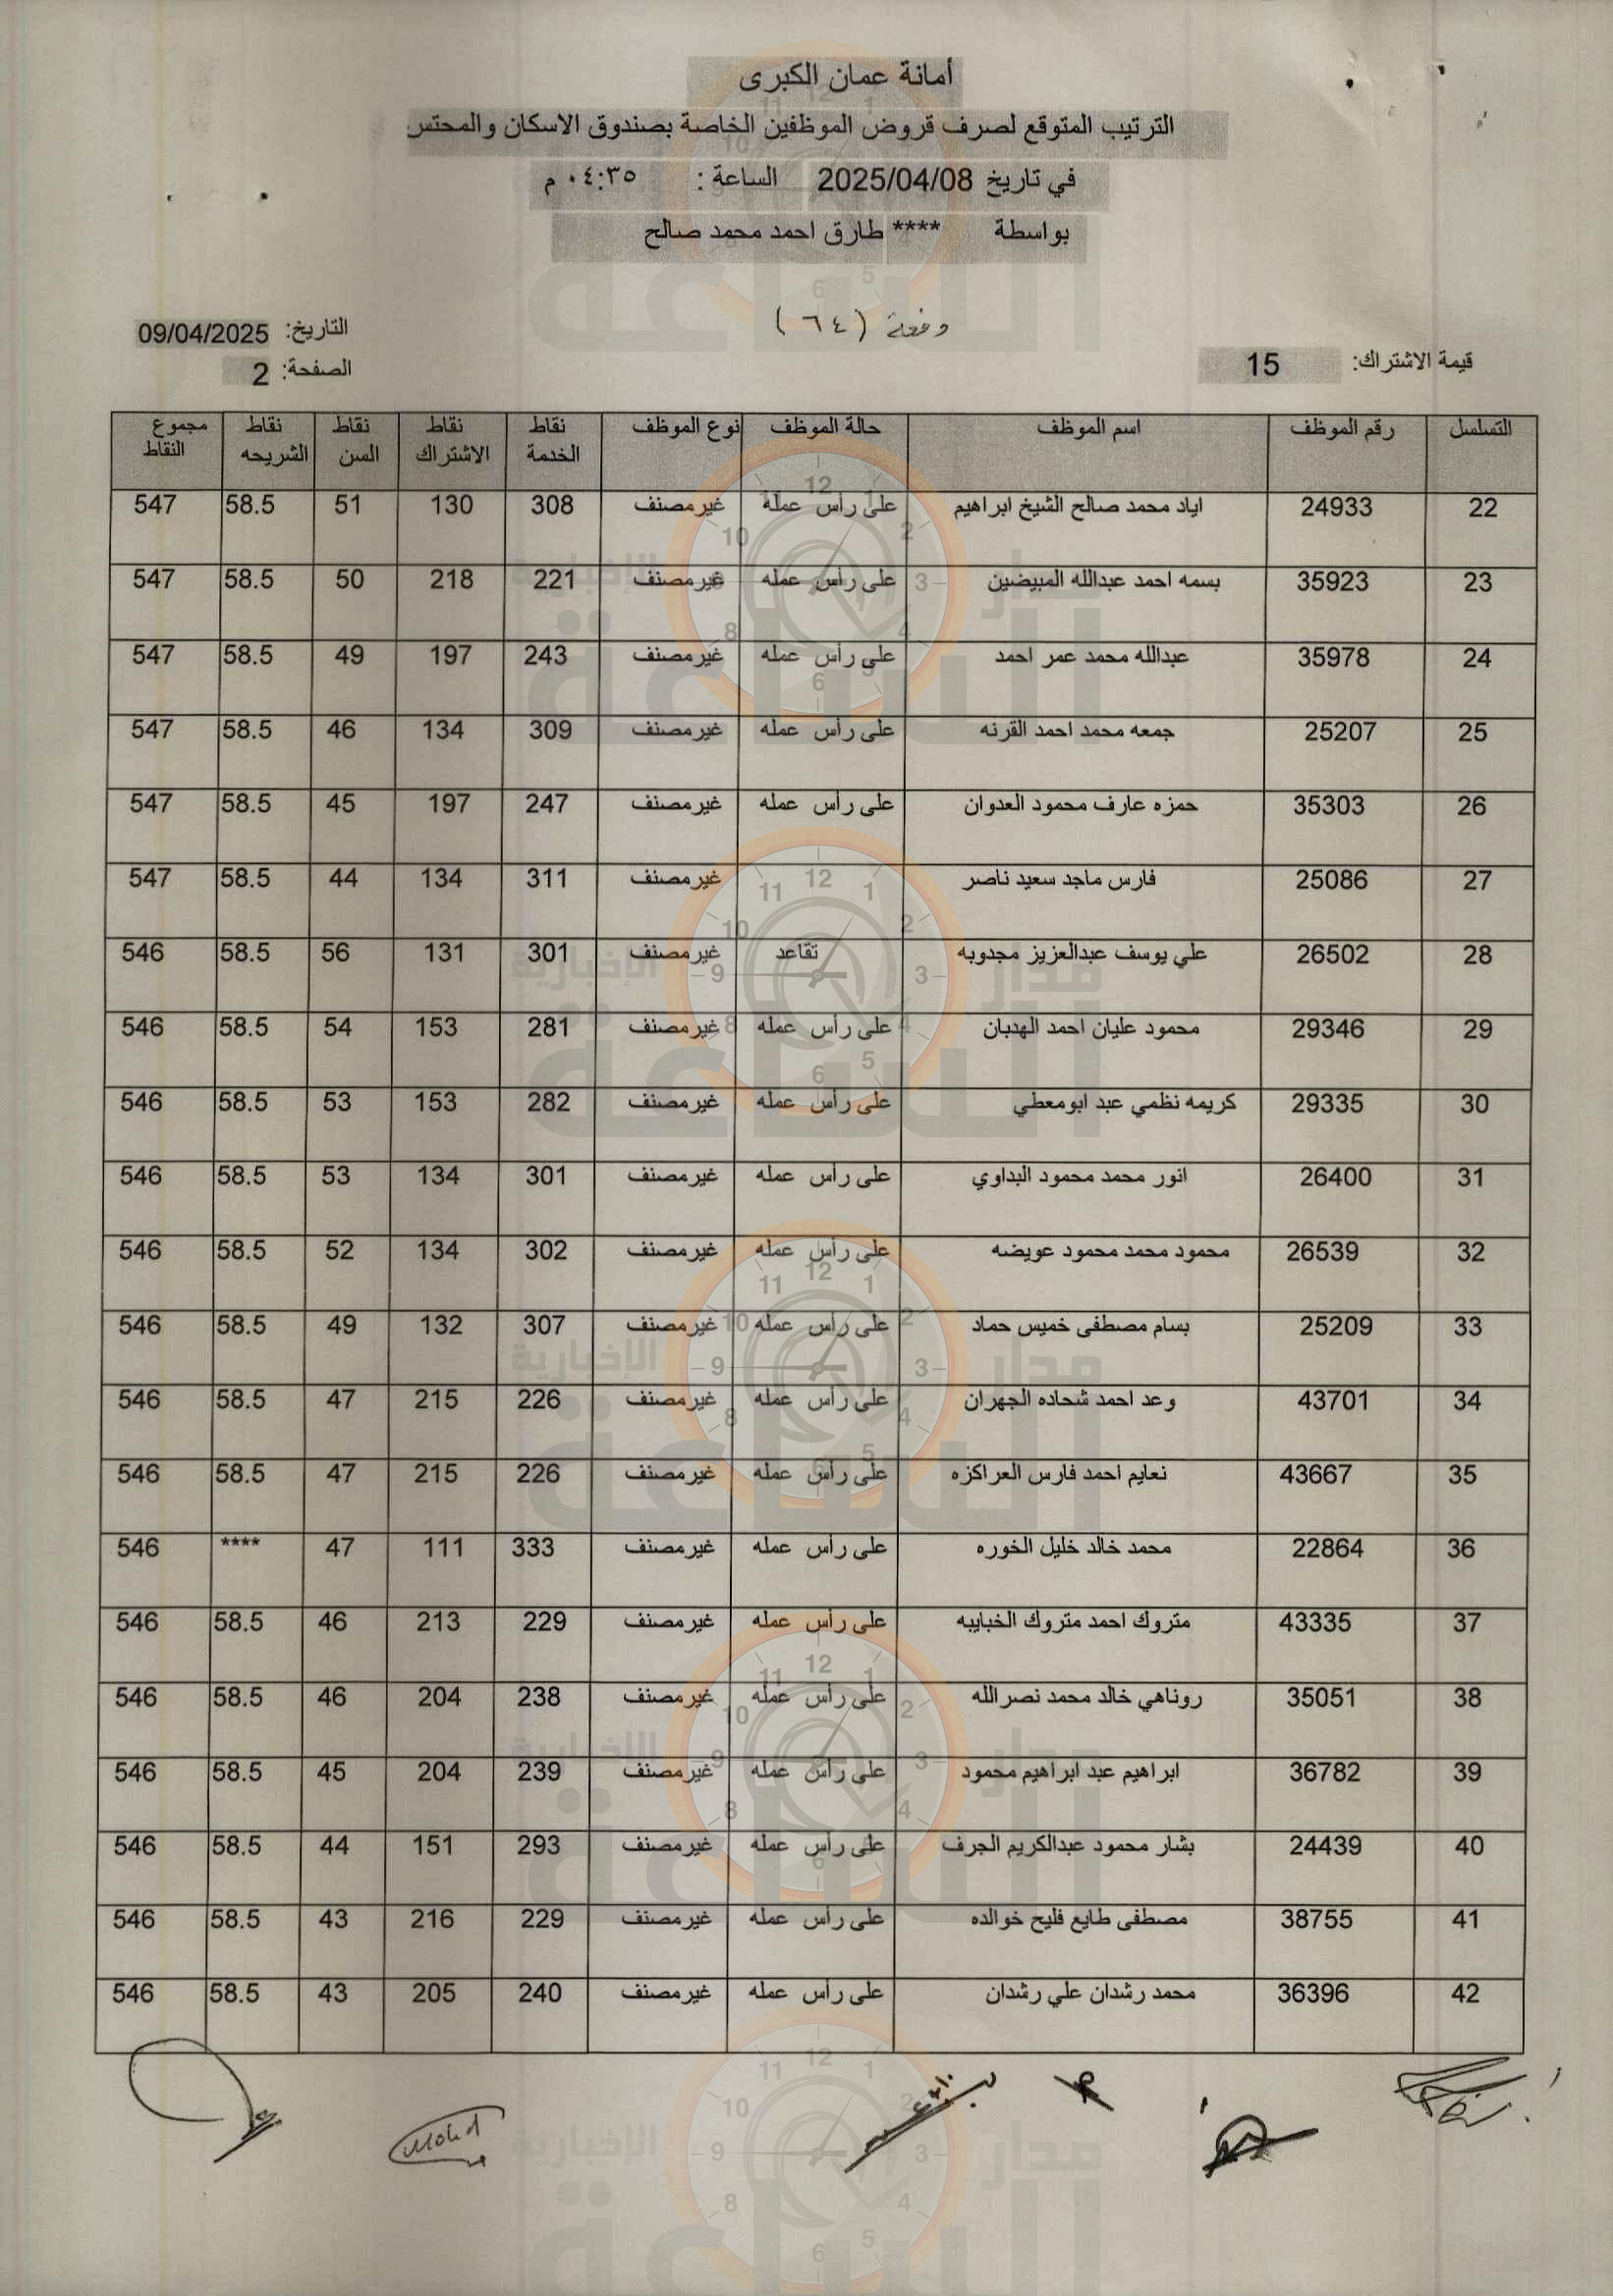 أمانة عمان الكبرى
الترتيب المتوقع لصرف قروض الموظفين الخاصة بصندوق الاسكان والمحتس
في تاريخ 2025/04/08 الساعة : ٠٤:٣٥ م
بواسطة **** طارق احمد محمد صالح
دفعة (٦٤)
التاريخ: 09/04/2025
قيمة الاشتراك: 15
الصفحة: 2
التسلسل رقم الموظف اسم الموظف حالة الموظف نوع الموظف نقاط الخدمة نقاط الاشتراك نقاط السن نقاط الشريحه مجموع النقاط
22 24933 اياد محمد صالح الشيخ ابراهيم على رأس عمله غير مصنف 308 130 51 58.5 547
23 35923 بسمه احمد عبدالله المبيضين على رأس عمله غير مصنف 221 218 50 58.5 547
24 35978 عبدالله محمد عمر احمد على رأس عمله غير مصنف 243 197 49 58.5 547
25 25207 جمعه محمد احمد القرنه على رأس عمله غير مصنف 309 134 46 58.5 547
26 35303 حمزه عارف محمود العدوان على رأس عمله غير مصنف 247 197 45 58.5 547
27 25086 فارس ماجد سعيد ناصر غير مصنف 311 134 44 58.5 547
28 26502 علي يوسف عبدالعزيز مجدوبه تقاعد غير مصنف 301 131 56 58.5 546
29 29346 محمود عليان احمد الهدبان على رأس عمله غير مصنف 281 153 54 58.5 546
30 29335 كريمه نظمي عبد ابومعطي على رأس عمله غير مصنف 282 153 53 58.5 546
31 26400 انور محمد محمود البداوي على رأس عمله غير مصنف 301 134 53 58.5 546
32 26539 محمود محمد محمود عويضه على رأس عمله غير مصنف 302 134 52 58.5 546
33 25209 بسام مصطفى خميس حماد على رأس عمله غير مصنف 307 132 49 58.5 546
34 43701 وعد احمد شحاده الجهران على رأس عمله غير مصنف 226 215 47 58.5 546
35 43667 نعايم احمد فارس العراكزه على رأس عمله غير مصنف 226 215 47 58.5 546
36 22864 محمد خالد خليل الخوره على رأس عمله غير مصنف 333 111 47 **** 546
37 43335 متروك احمد متروك الخبايبه على رأس عمله غير مصنف 229 213 46 58.5 546
38 35051 روناهي خالد محمد نصرالله على رأس عمله غير مصنف 238 204 46 58.5 546
39 36782 ابراهيم عبد ابراهيم محمود على رأس عمله غير مصنف 239 204 45 58.5 546
40 24439 بشار محمود عبدالكريم الجرف على رأس عمله غير مصنف 293 151 44 58.5 546
41 38755 مصطفى طايع فليح خوالده على رأس عمله غير مصنف 229 216 43 58.5 546
42 36396 محمد رشدان علي رشدان على رأس عمله غير مصنف 240 205 43 58.5 546
Mohd
مدار الساعة الإخبارية